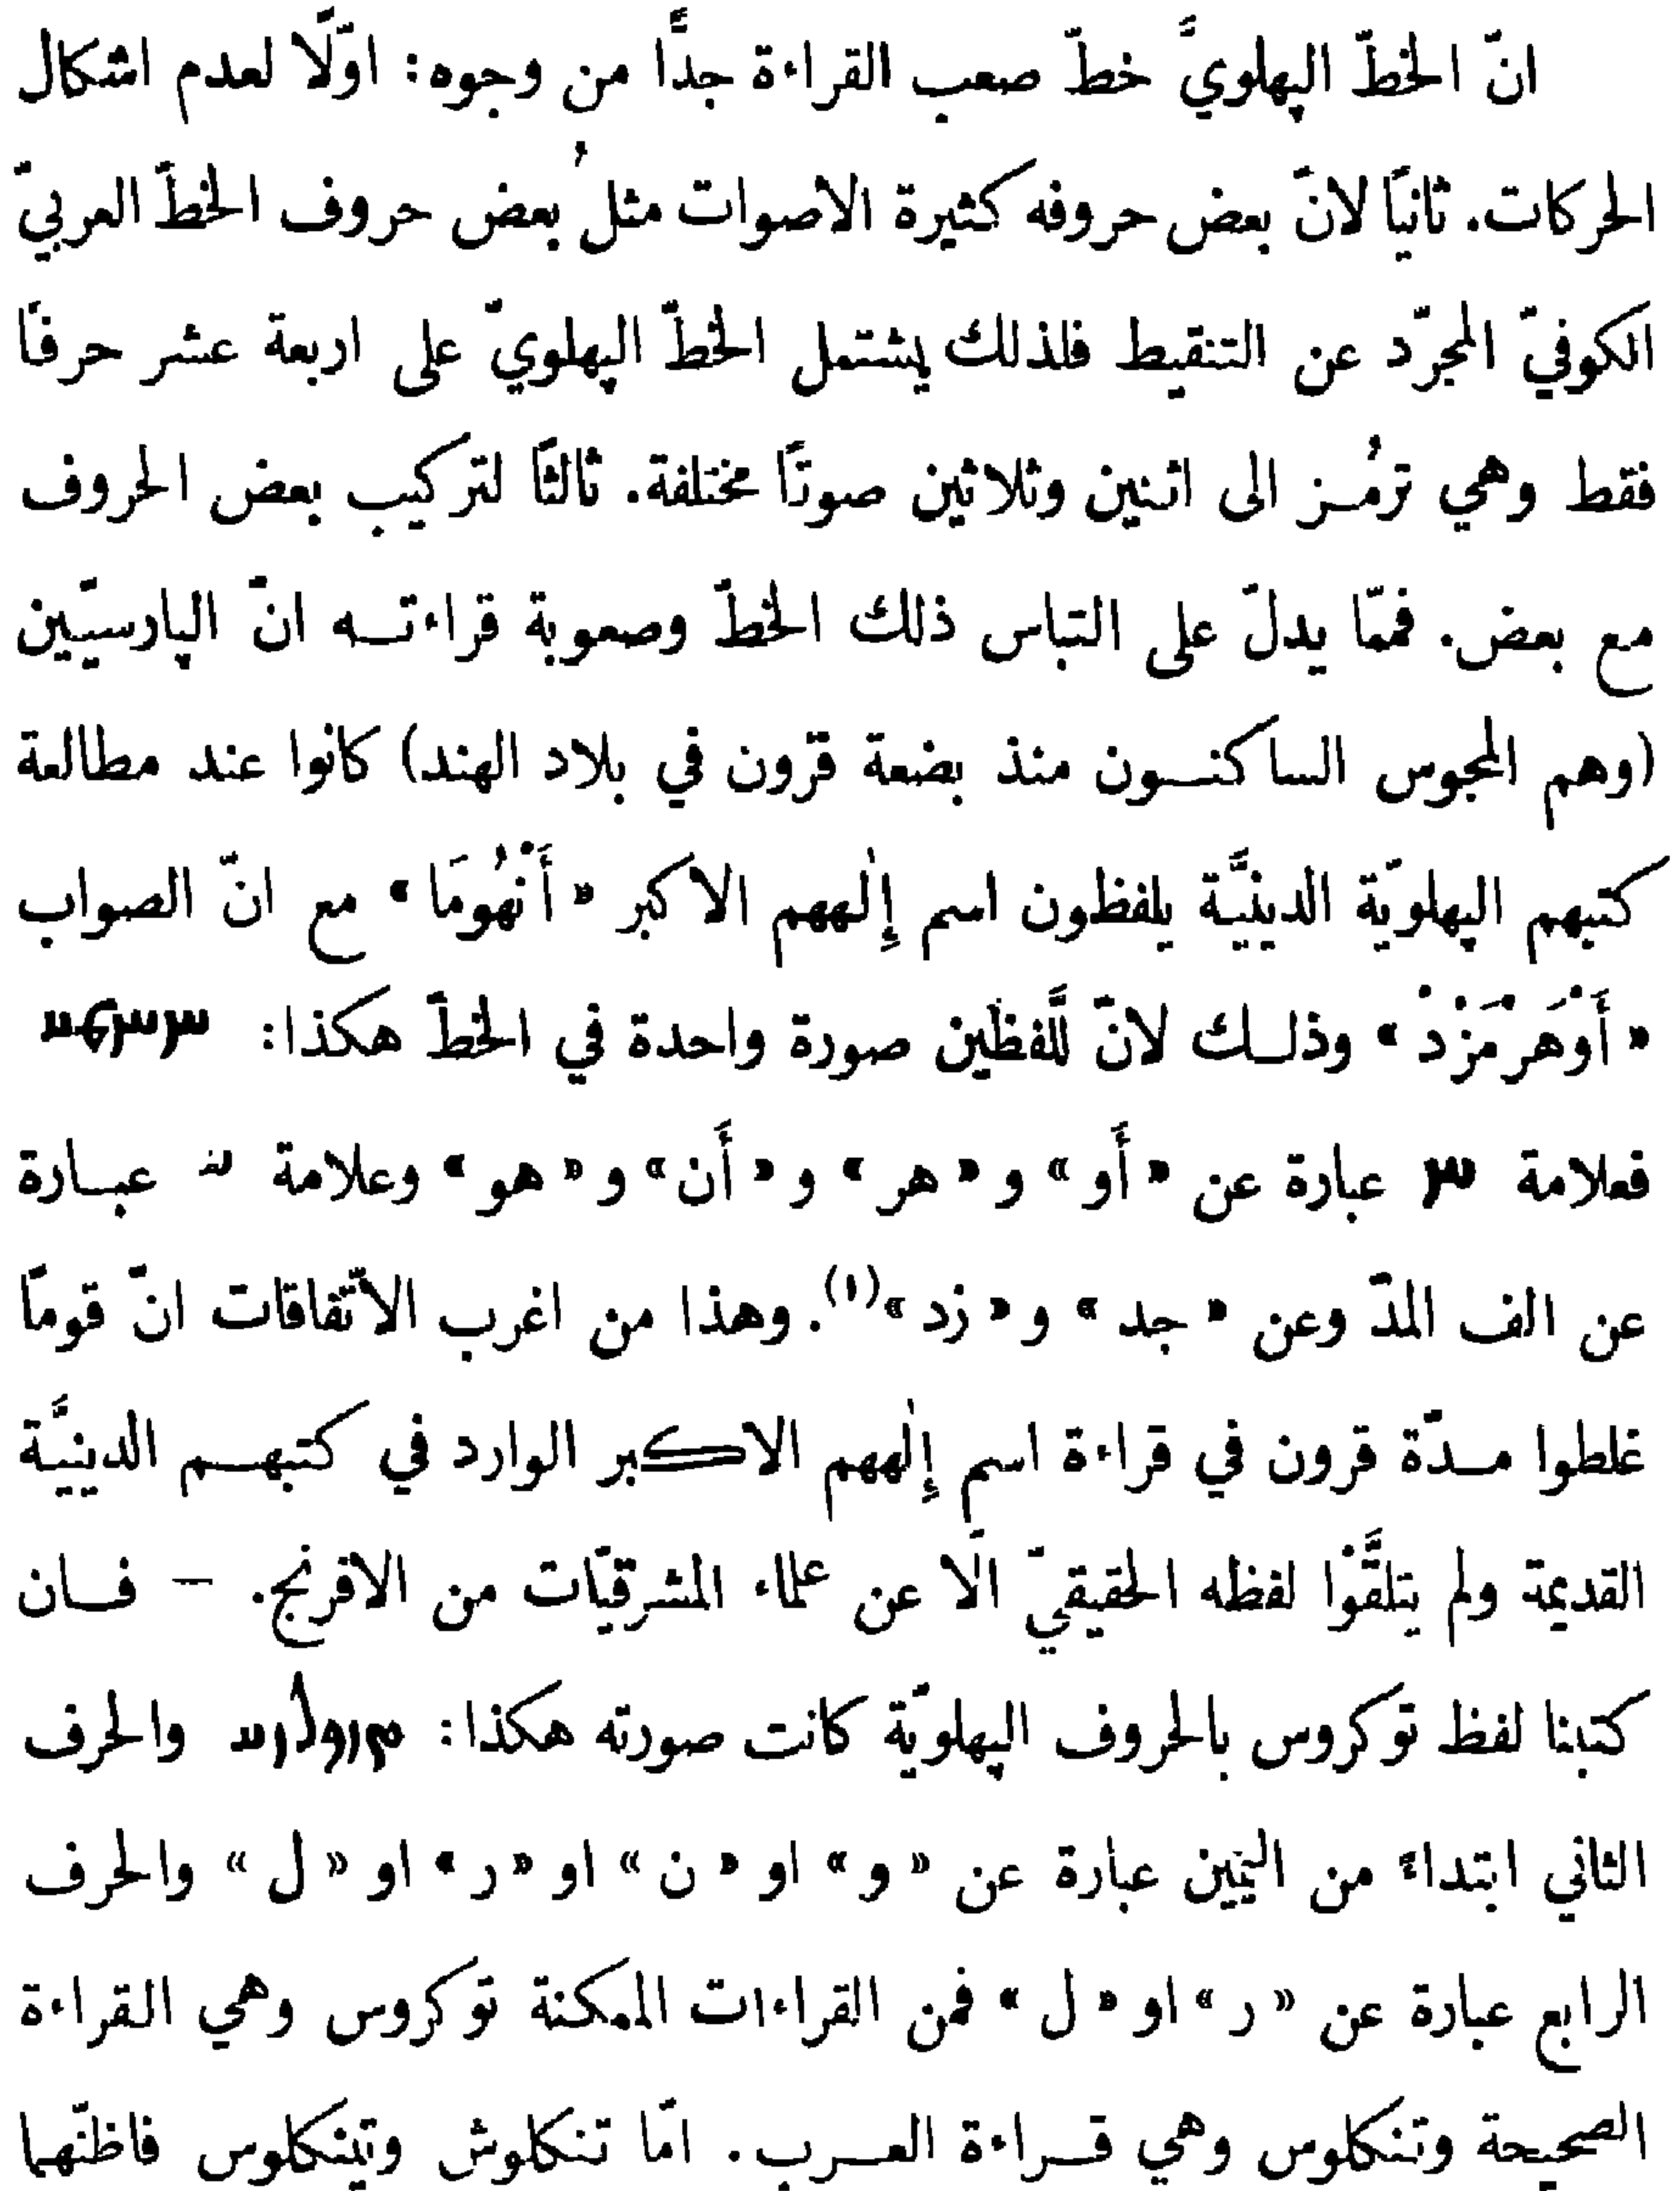 انّ الخطّ الپهلويَّ خطّ صعب القراءة جدًّا من وجوه: اوّلًا لعدم اشكال
الحركات. ثانيًا لانّ بعض حروفه كثيرة الاصوات مثلُ بعض حروف الخطّ العربيّ
الكوفيّ المجرّد عن التنقيط فلذلك يشتمل الخطّ الپهلويّ على اربعة عشر حرفًا
فقط وهي ترمُـز الى اثنين وثلاثين صوتًا مختلفة. ثالثًا لتركيب بعض الحروف
مع بعض. فممّا يدلّ على التباس ذلك الخطّ وصعوبة قراءتـه انّ الپارسيّين
(وهم المجوس الساكنـون منذ بضعة قرون في بلاد الهند) كانوا عند مطالعة
كتبهم الپهلويّة الدينيَّة يلفظون اسم إِلٰههم الاكبر «أَنْهُومَا» مع انّ الصواب
«أَوْهَرْمَزْدْ» وذلـك لانّ للَّفظين صورة واحدة في الخطّ هكذا:
فعلامة عبارة عن «أَو» و«هر» و«أَن» و«هو» وعلامة عبـارة
عن الف المدّ وعن «جد» و«زد»(١). وهذا من اغرب الاتّفاقات انّ قومًا
غلطوا مـدّة قرون في قراءة اسم إِلٰههم الاكبر الوارد في كتبهـم الدينيَّة
القديمة ولم يتلقَّوْا لفظه الحقيقيّ الّا عن علماء المشرقيّات من الافرنج. — فـان
كتبنا لفظ توكروس بالحروف الپهلويّة كانت صورته هكذا: والحرف
الثاني ابتداءً من اليمين عبارة عن «و» او «ن» او «ر» او «ل» والحرف
الرابع عبارة عن «ر» او «ل» فمن القراءات الممكنة توكروس وهي القراءة
الصحيحة وتنكلوس وهي قـراءة العـرب. امّا تنكلوش وتينكلوس فاظنّهما